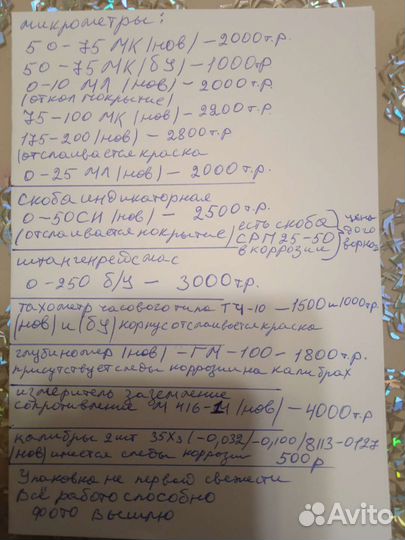 микрометры:
50-75 МК (нов) - 2000т.р.
50-75 МК (БУ) - 1000тр
0-10 МЛ (нов) - 2000т.р.
(откол покрытие)
75-100 МК (нов) - 2200т.р.
175-200 (нов) - 2800т.р
(отслаивается краска
0-25 МЛ (нов) - 2000т.р.
скоба индикаторная
0-50СИ (нов) - 2500т.р.
(отслаивается покрытие) есть скоба СРП 25-50 в коррозии } цена договорная
штангенрейсмас
0-250 б/у - 3000тр.
тахометр часового типа ТЧ-10 - 1500 и 1000тр
(нов) и (бу) корпус отслаивается краска
глубиномер (нов) - ГМ-100-1800т.р.
присутствует следы коррозии на калибрах
измеритель заземление
сопротивление М416-1 (нов) - 4000т.р
калибры 2шт 35Х3 (-0,032/-0,100/8113-0127
(нов) имеется следы коррозии 500р
Упаковка не первой свежести
Всё работоспособно
Фото вышлю
Avito